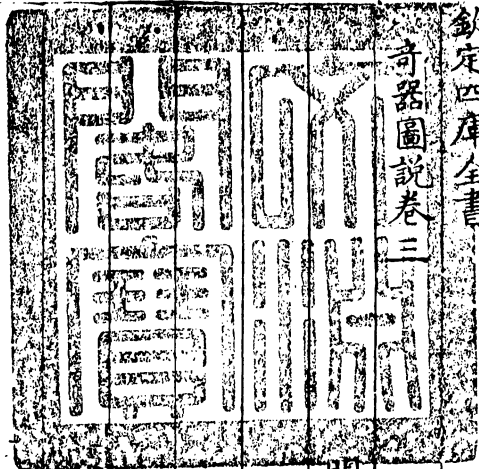 欽定四庫全書
奇器圖說卷三
文淵
閣寶